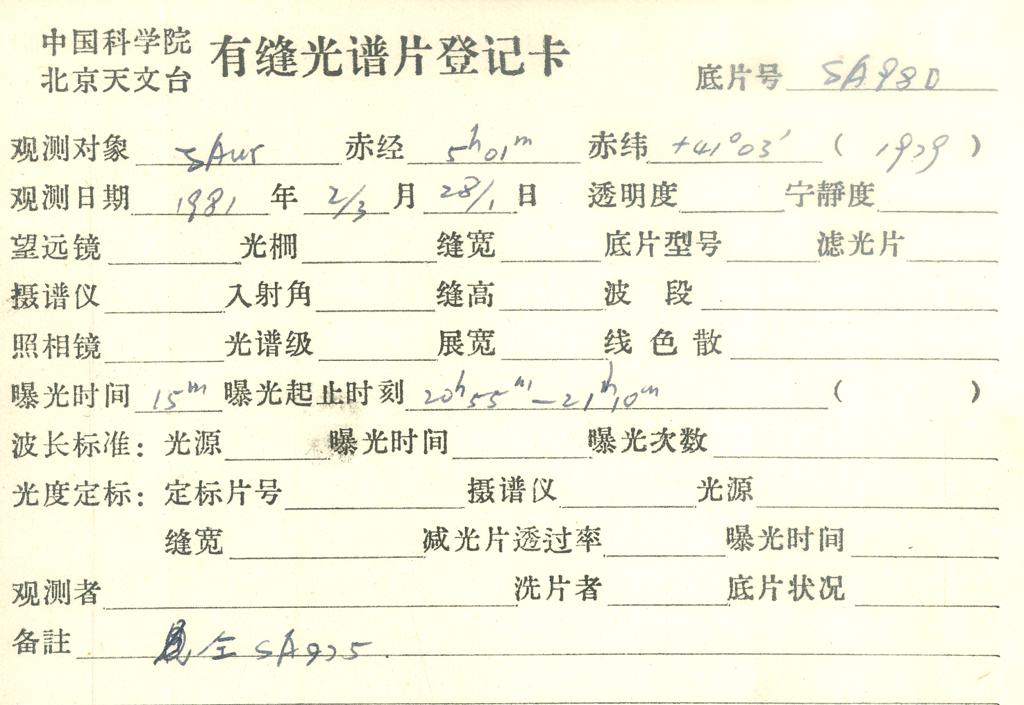 中国科学院
北京天文台
有缝光谱片登记卡
底片号 SA980
观测对象 ζAur 赤经 5h01m 赤纬 +41°03′ ( 1979 )
观测日期 1981 年 2/3 月 28/1 日 透明度 宁静度
望远镜 光栅 缝宽 底片型号 滤光片
摄谱仪 入射角 缝高 波 段
照相镜 光谱级 展宽 线 色 散
曝光时间 15m 曝光起止时刻 20h55m—21h10m ( )
波长标准: 光源 曝光时间 曝光次数
光度定标: 定标片号 摄谱仪 光源
缝宽 减光片透过率 曝光时间
观测者 洗片者 底片状况
备註 全 SA975